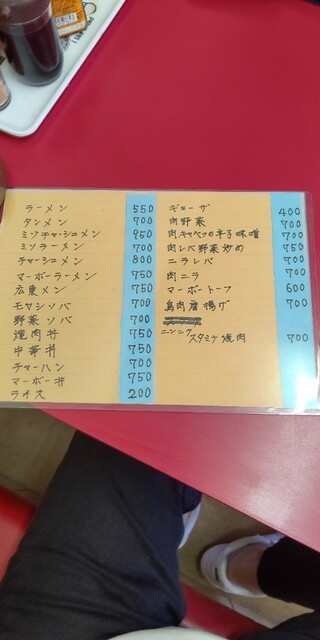 ラーメン 550
タンメン 700
ミソチャーシューメン 950
ミソラーメン 700
チャーシューメン 800
マーボーラーメン 750
広東メン 750
モヤシソバ 700
野菜ソバ 700
焼肉丼 750
中華丼 750
チャーハン 700
マーボー丼 750
ライス 200
ギョーザ 400
肉野菜 700
肉キャベツの辛子味噌 700
肉レバ野菜炒め 750
ニラレバ 700
肉ニラ 700
マーボートーフ 600
鳥肉唐揚げ 700
ニンニク
スタミナ焼肉 700